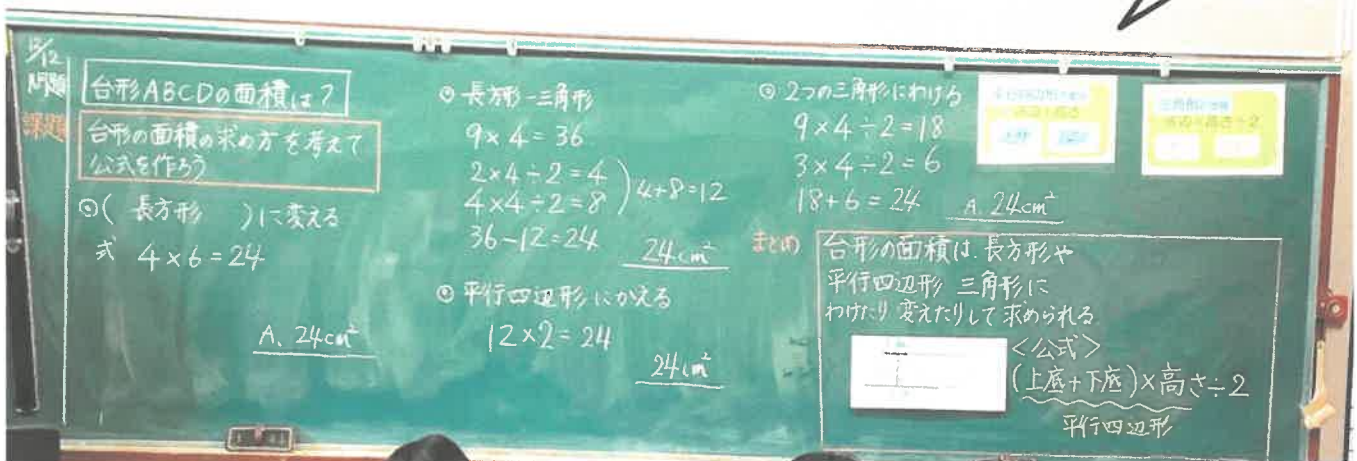 12/12
問題
台形ABCDの面積は?
課題
台形の面積の求め方を考えて
公式を作ろう
◎( 長方形 )に変える
式 4×6=24
A. 24cm²
◎ 長方形-三角形
9×4=36
2×4÷2=4
4×4÷2=8
4+8=12
36-12=24
24cm²
◎ 平行四辺形にかえる
12×2=24
24cm²
◎ 2つの三角形にわける
9×4÷2=18
3×4÷2=6
18+6=24
A. 24cm²
まとめ
台形の面積は、長方形や
平行四辺形 三角形に
わけたり変えたりして求められる
<公式>
(上底+下底)×高さ÷2
平行四辺形